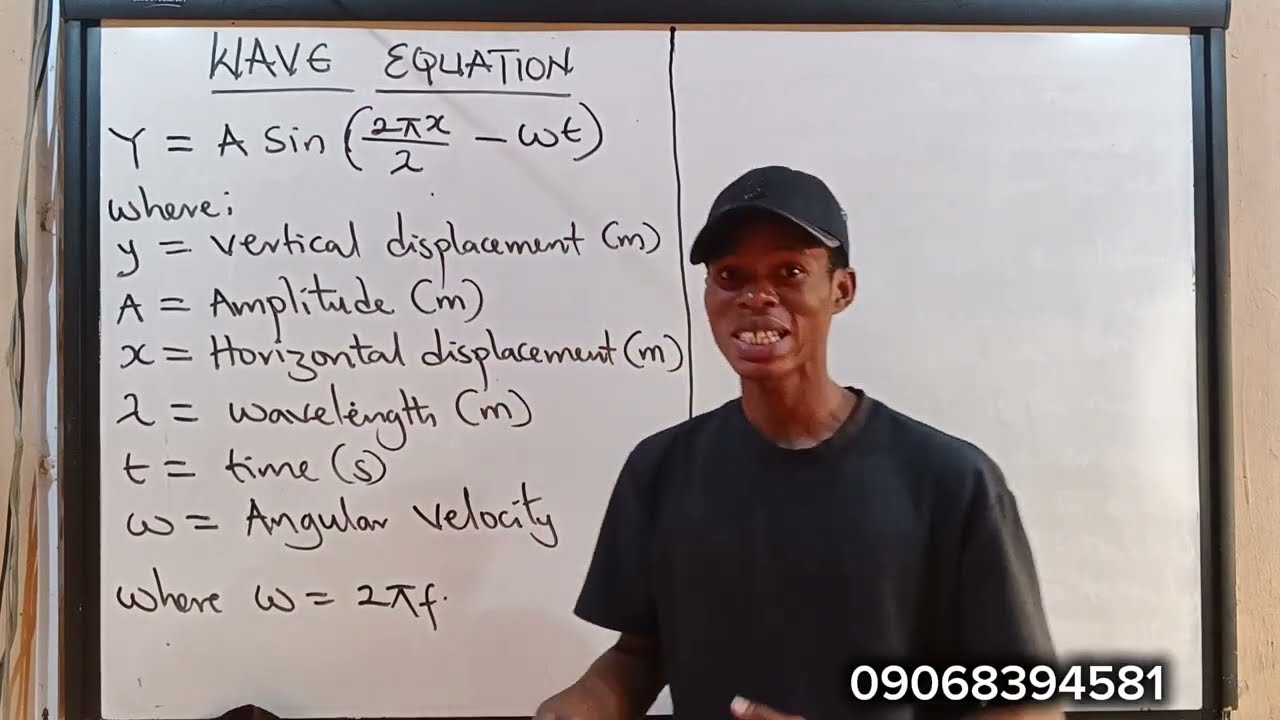 WAVE EQUATION
Y = A Sin (2πx/λ - ωt)
where;
y = vertical displacement (m)
A = Amplitude (m)
x = Horizontal displacement (m)
λ = wavelength (m)
t = time (s)
ω = Angular velocity
where ω = 2πf.
09068394581